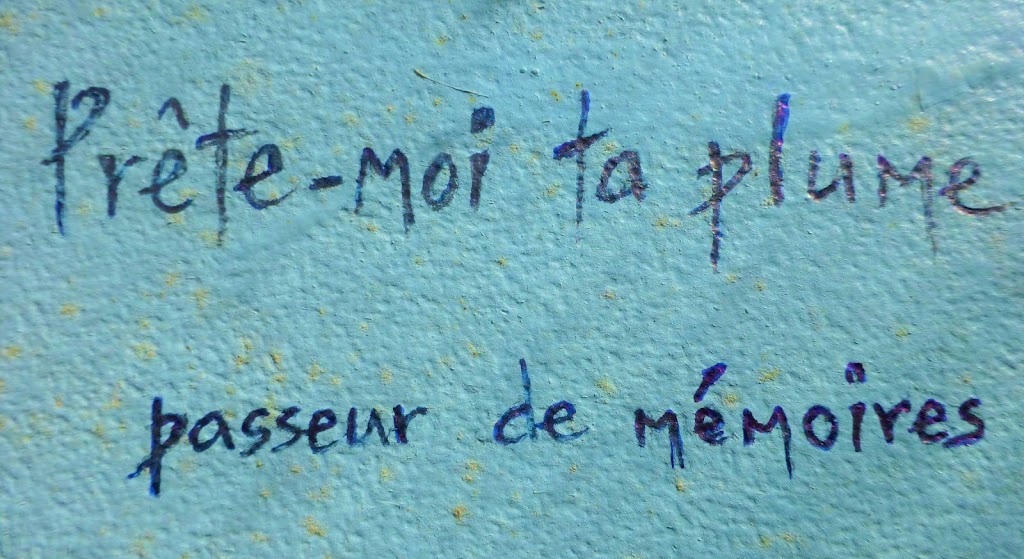 Prête-moi ta plume
passeur de mémoires